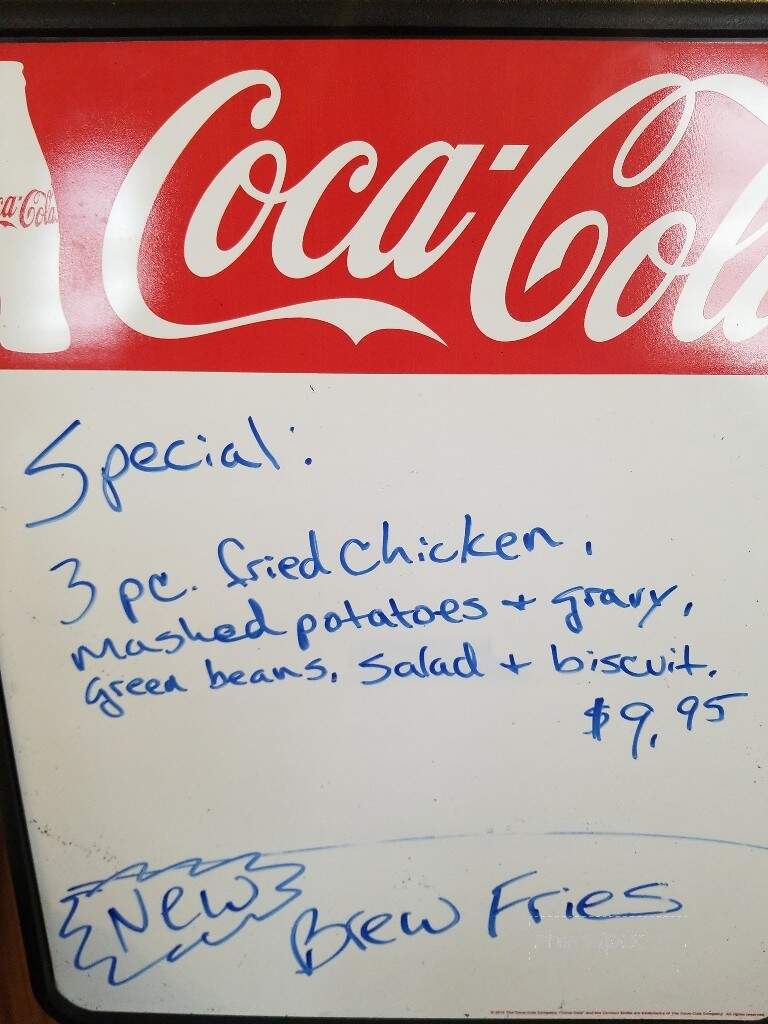 Coca-Cola
ca-Cola
Special:
3 pc. fried chicken,
mashed potatoes + gravy,
green beans, salad + biscuit.
$9.95
New
Brew Fries